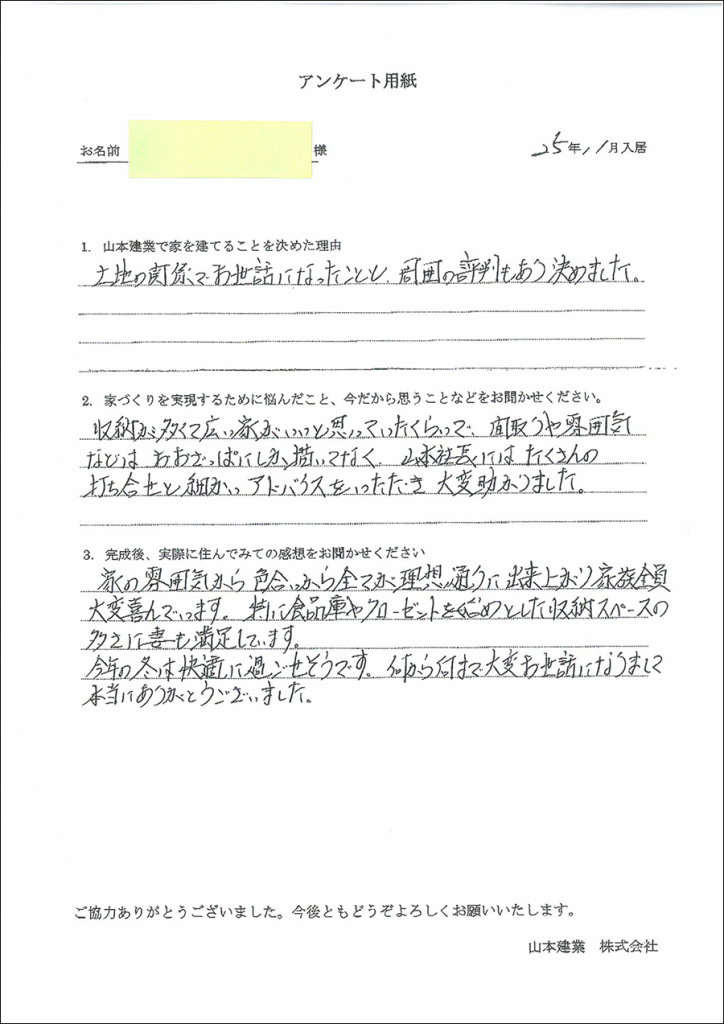 アンケート用紙
お名前 様 25年11月入居
1. 山本建業で家を建てることを決めた理由
土地の関係でお世話になったことと、周囲の評判もあり決めました。
2. 家づくりを実現するために悩んだこと、今だから思うことなどをお聞かせください。
収納が多くて広い家がいいと思っていたくらいで、間取りや雰囲気
などは おおざっぱにしか描いてなく、山本社長には たくさんの
打ち合せと細かい アドバイスをいただき 大変助かりました。
3. 完成後、実際に住んでみての感想をお聞かせください
家の雰囲気から 色合いから全てが理想通りに出来上がり家族全員
大変喜んでいます。特に食品庫やクローゼットを始めとした収納スペースの
多さに妻も満足しています。
今年の冬は快適に過ごせそうです。何から何まで大変お世話になりまして
本当にありがとうございました。
ご協力ありがとうございました。今後ともどうぞよろしくお願いいたします。
山本建業 株式会社